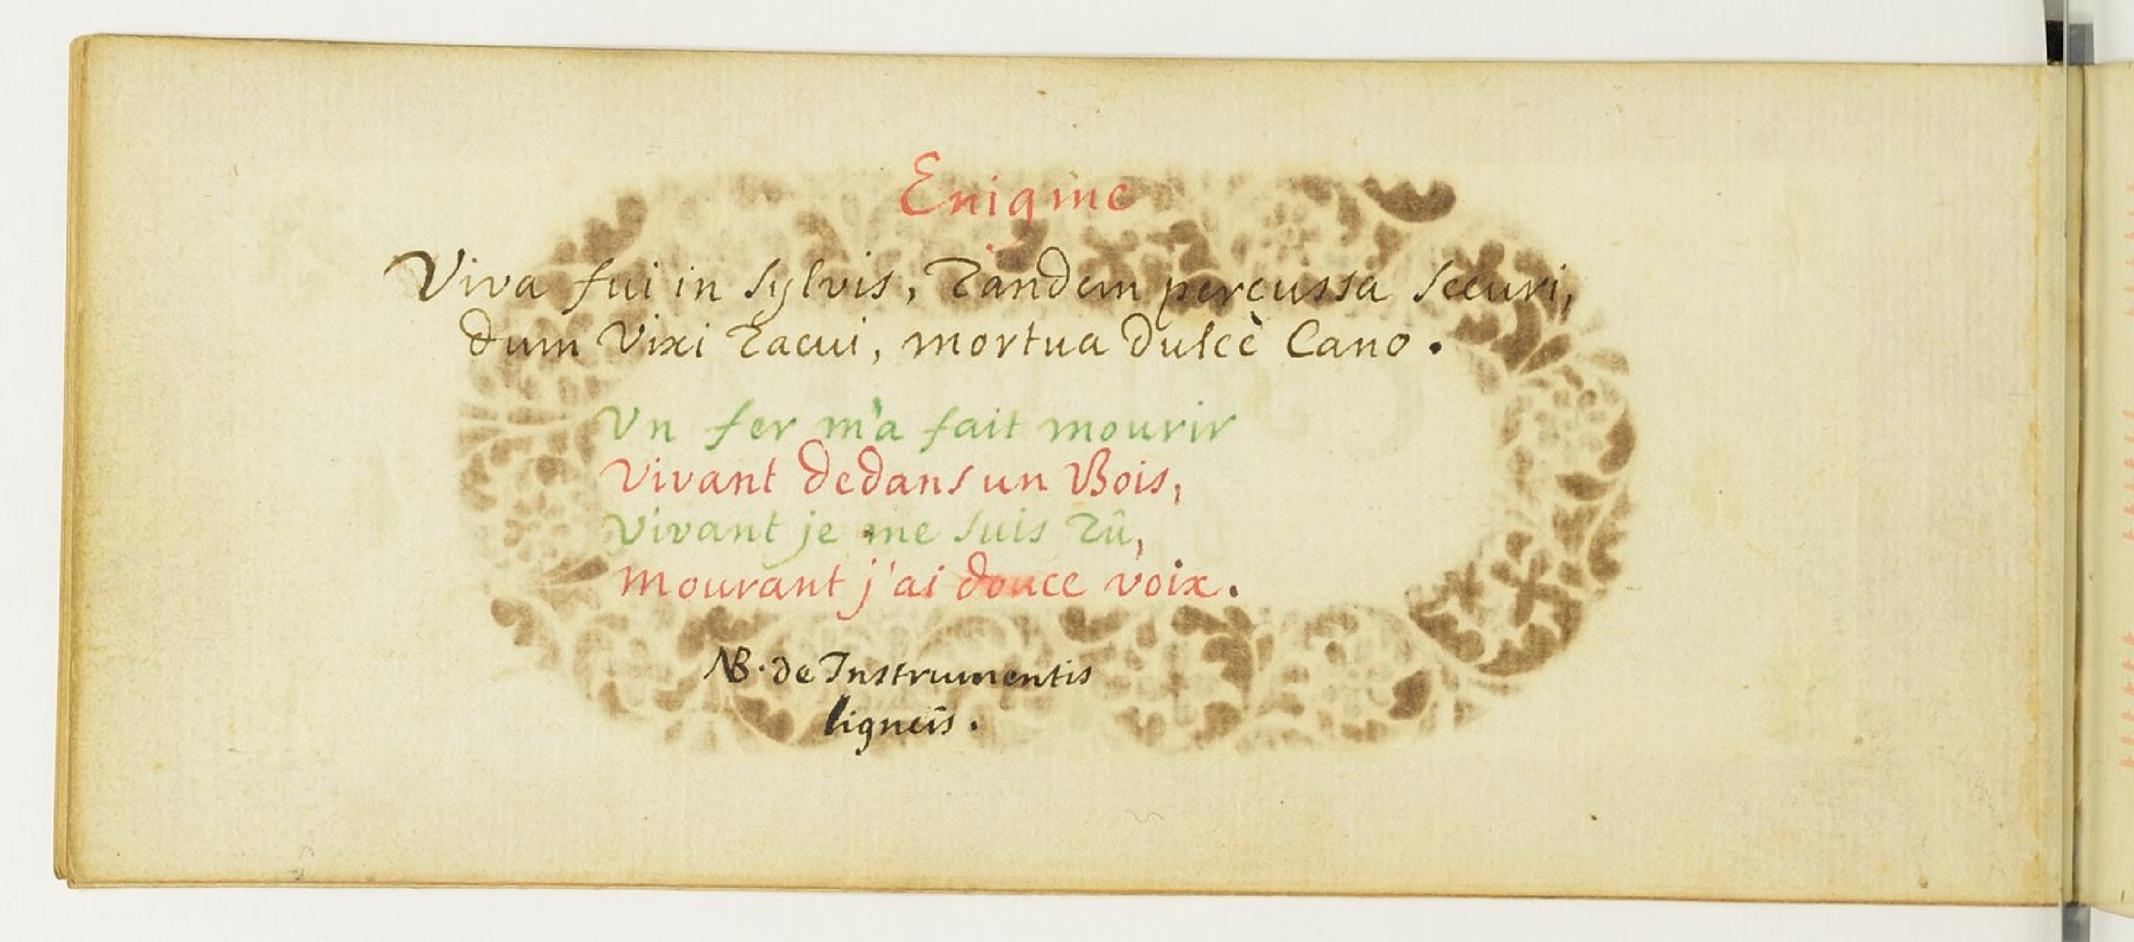 Enigme
Viva fui in sylvis, Tandem percussa securi,
dum Vixi Tacui, mortua dulcè Cano.
Un fer m'a fait mourir
Vivant dedans un Bois,
Vivant je me suis Tû,
mourant j'ai douce voix.
NB. de Instrumentis
ligneis.